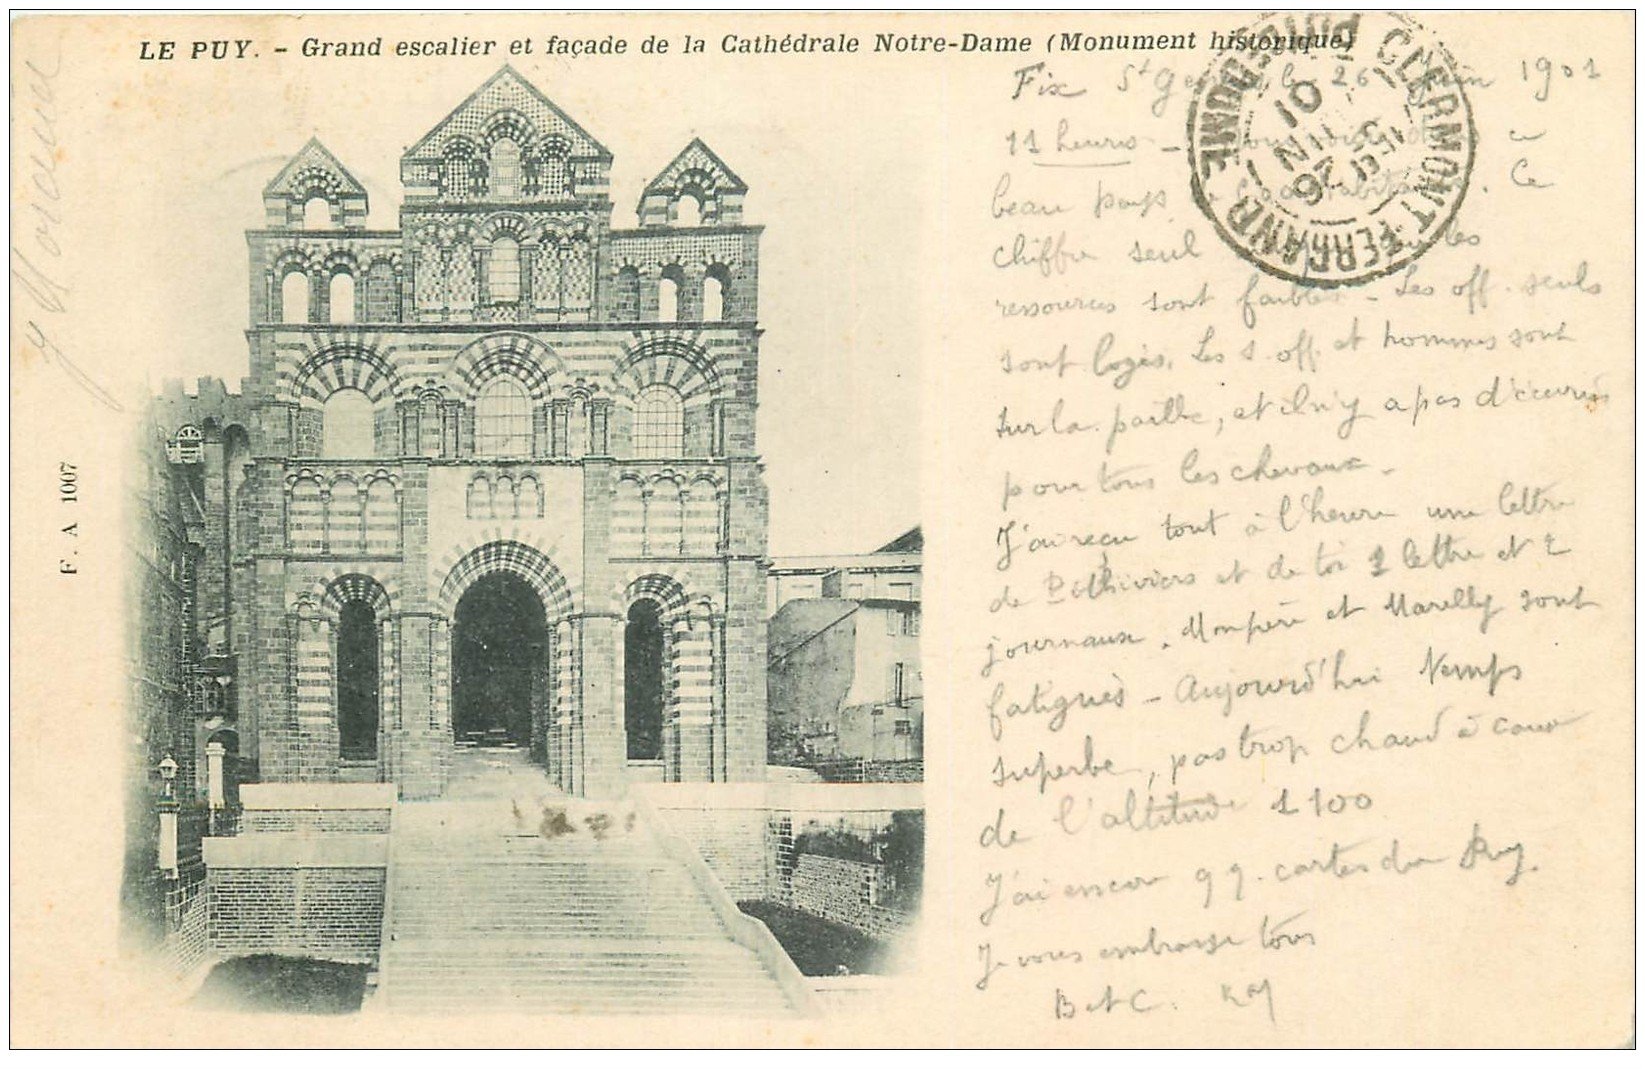 LE PUY. – Grand escalier et façade de la Cathédrale Notre-Dame (Monument historique)
Fix St 26 Juin 1901
11 heures –
beau pays . Ce
chiffre seul les
ressources sont faibles – Les off. seuls
sont logés. Les s. off. et hommes sont
sur la paille, et il n'y a pas d'écuries
pour tous les chevaux.
J'ai reçu tout à l'heure une lettre
de Pithiviers et de toi 1 lettre et 2
journaux. et Marelly sont
fatigués – Aujourd'hui temps
superbe, pas trop chaud à cause
de l'altitude 1100
J'ai encore qq. cartes du Puy.
Je vous embrasse tous
B et C.
CLERMONT-FERRAND
PUY-DE-DOME
26 JUIN 01
F. A 1007